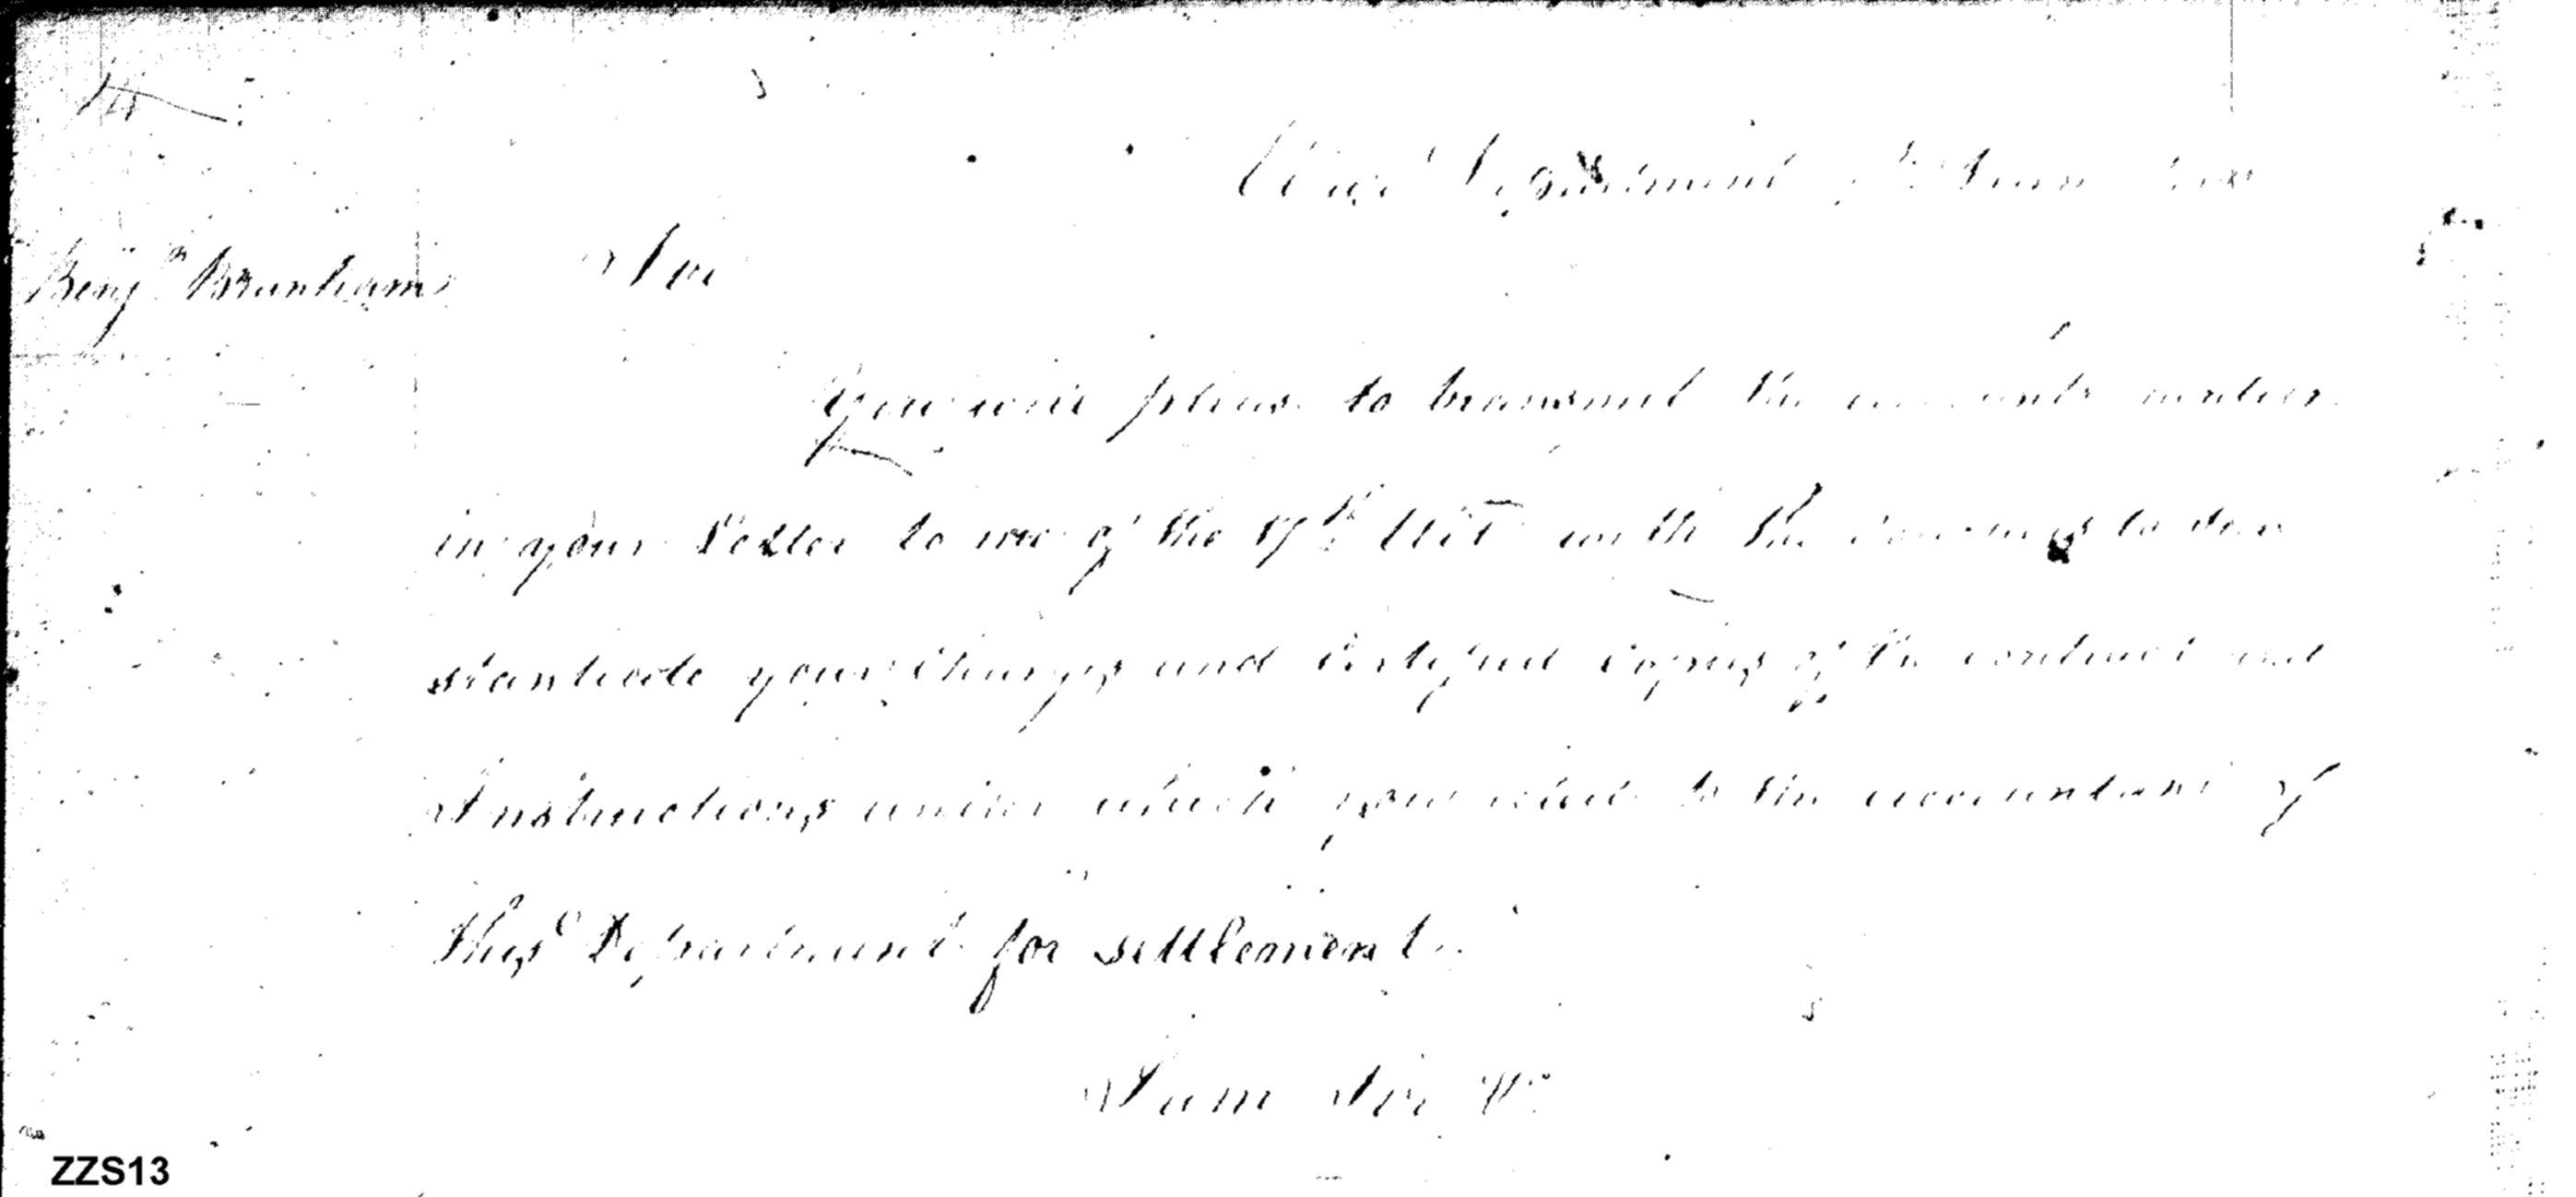 War Department June
Benjn Branham Sir
You will please to transmit the accounts
in your letter to me of the 17th Ult with the to sub
stantiate your charges and certified copies of the contract and
Instructions under which you acted to the accountant of
this Department for settlement.
I am Sir &c
ZZS13